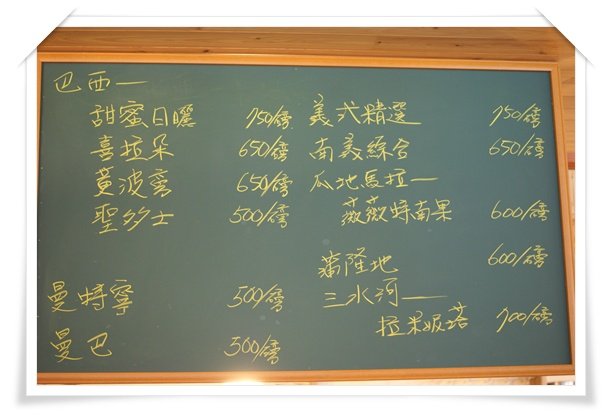 巴西—
甜蜜日曬 750/磅
喜拉朵 650/磅
黃波旁 650/磅
聖多士 500/磅
曼特寧 500/磅
曼巴 500/磅
義式精選 750/磅
南義綜合 650/磅
瓜地馬拉—
薇薇特南果 600/磅
蒲隆地 600/磅
三水河—
拉米妮塔 700/磅